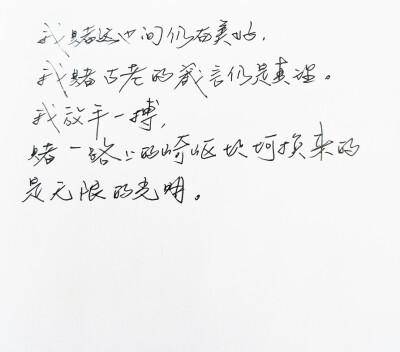 我赌这世间仍有美好，
我赌古老的箴言仍是真理。
我放手一搏，
赌一路上的崎岖坎坷换来的
是无限的光明。